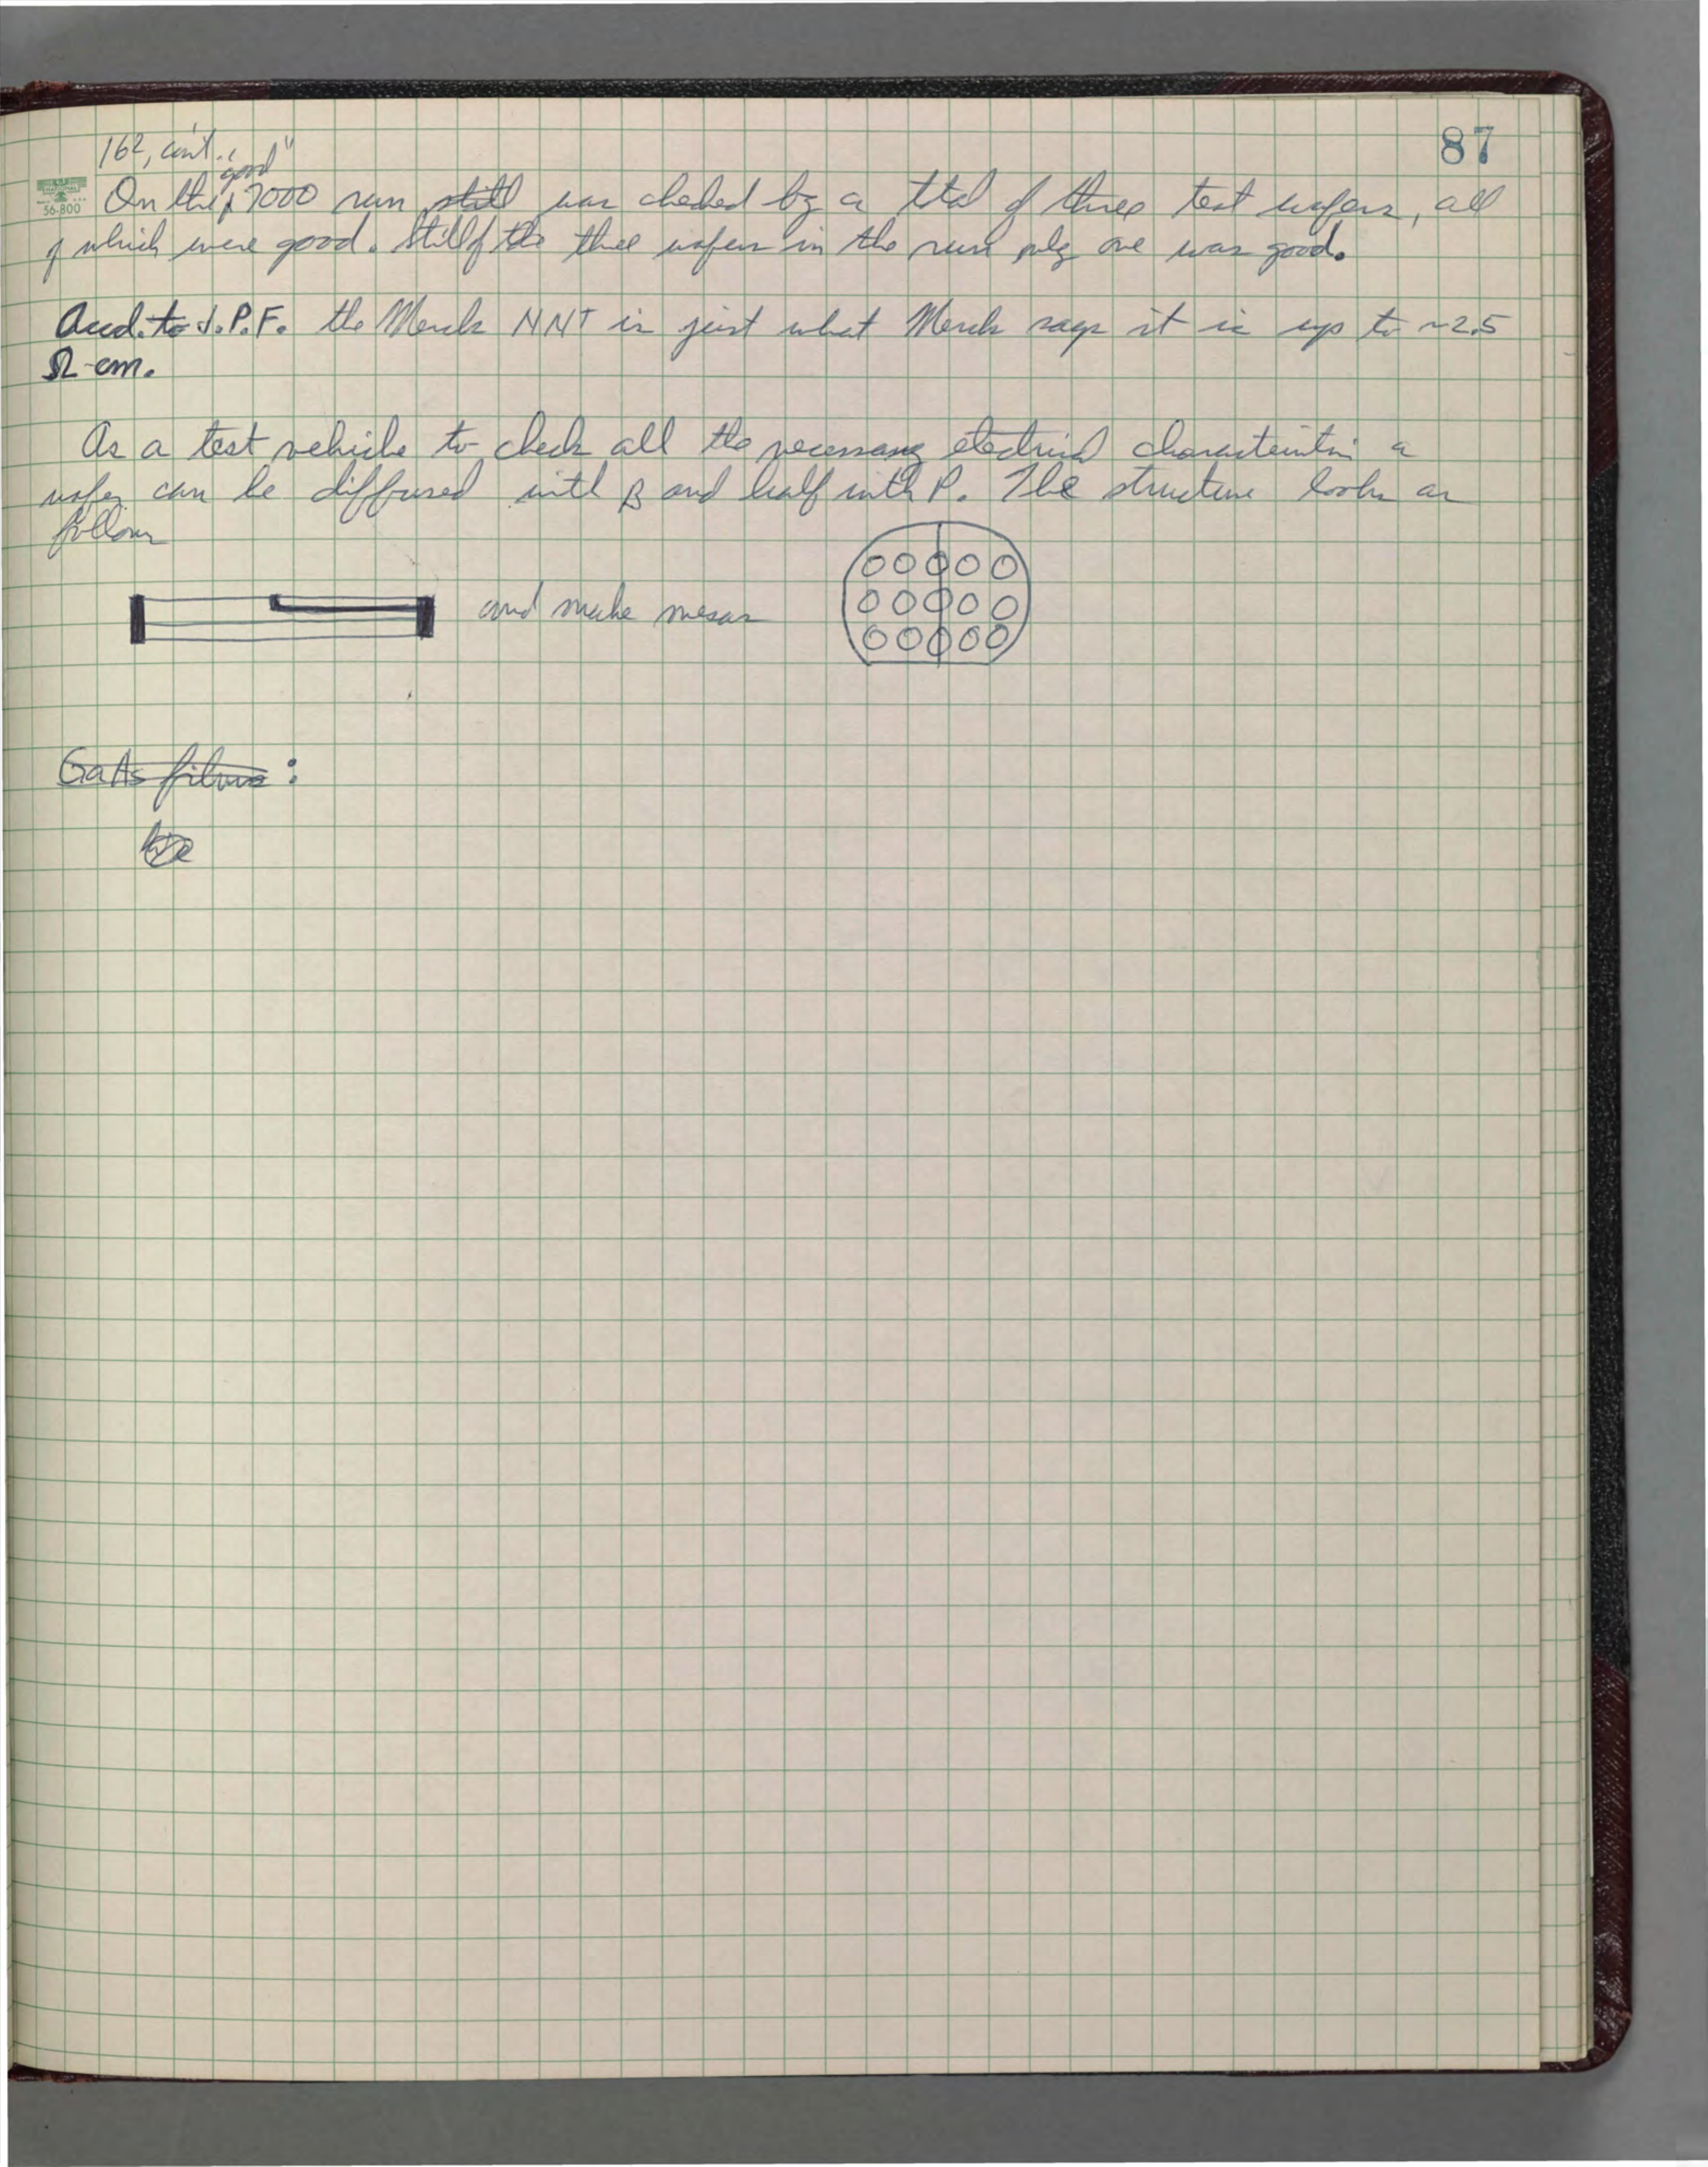 87
162, con't.
"good"
NATIONAL
56-800
On the 7000 run still was checked by a total of three test wafers, all
of which were good. Still of the three wafers in the run only one was good.
Accd. to J.P.F. the Merck NN+ is just what Merck says it is up to ~2.5
Ω-cm.
As a test vehicle to check all the necessary electrical characteristics a
wafer can be diffused with B and half with P. The structure looks as
follows
and make mesas
GaAs films: